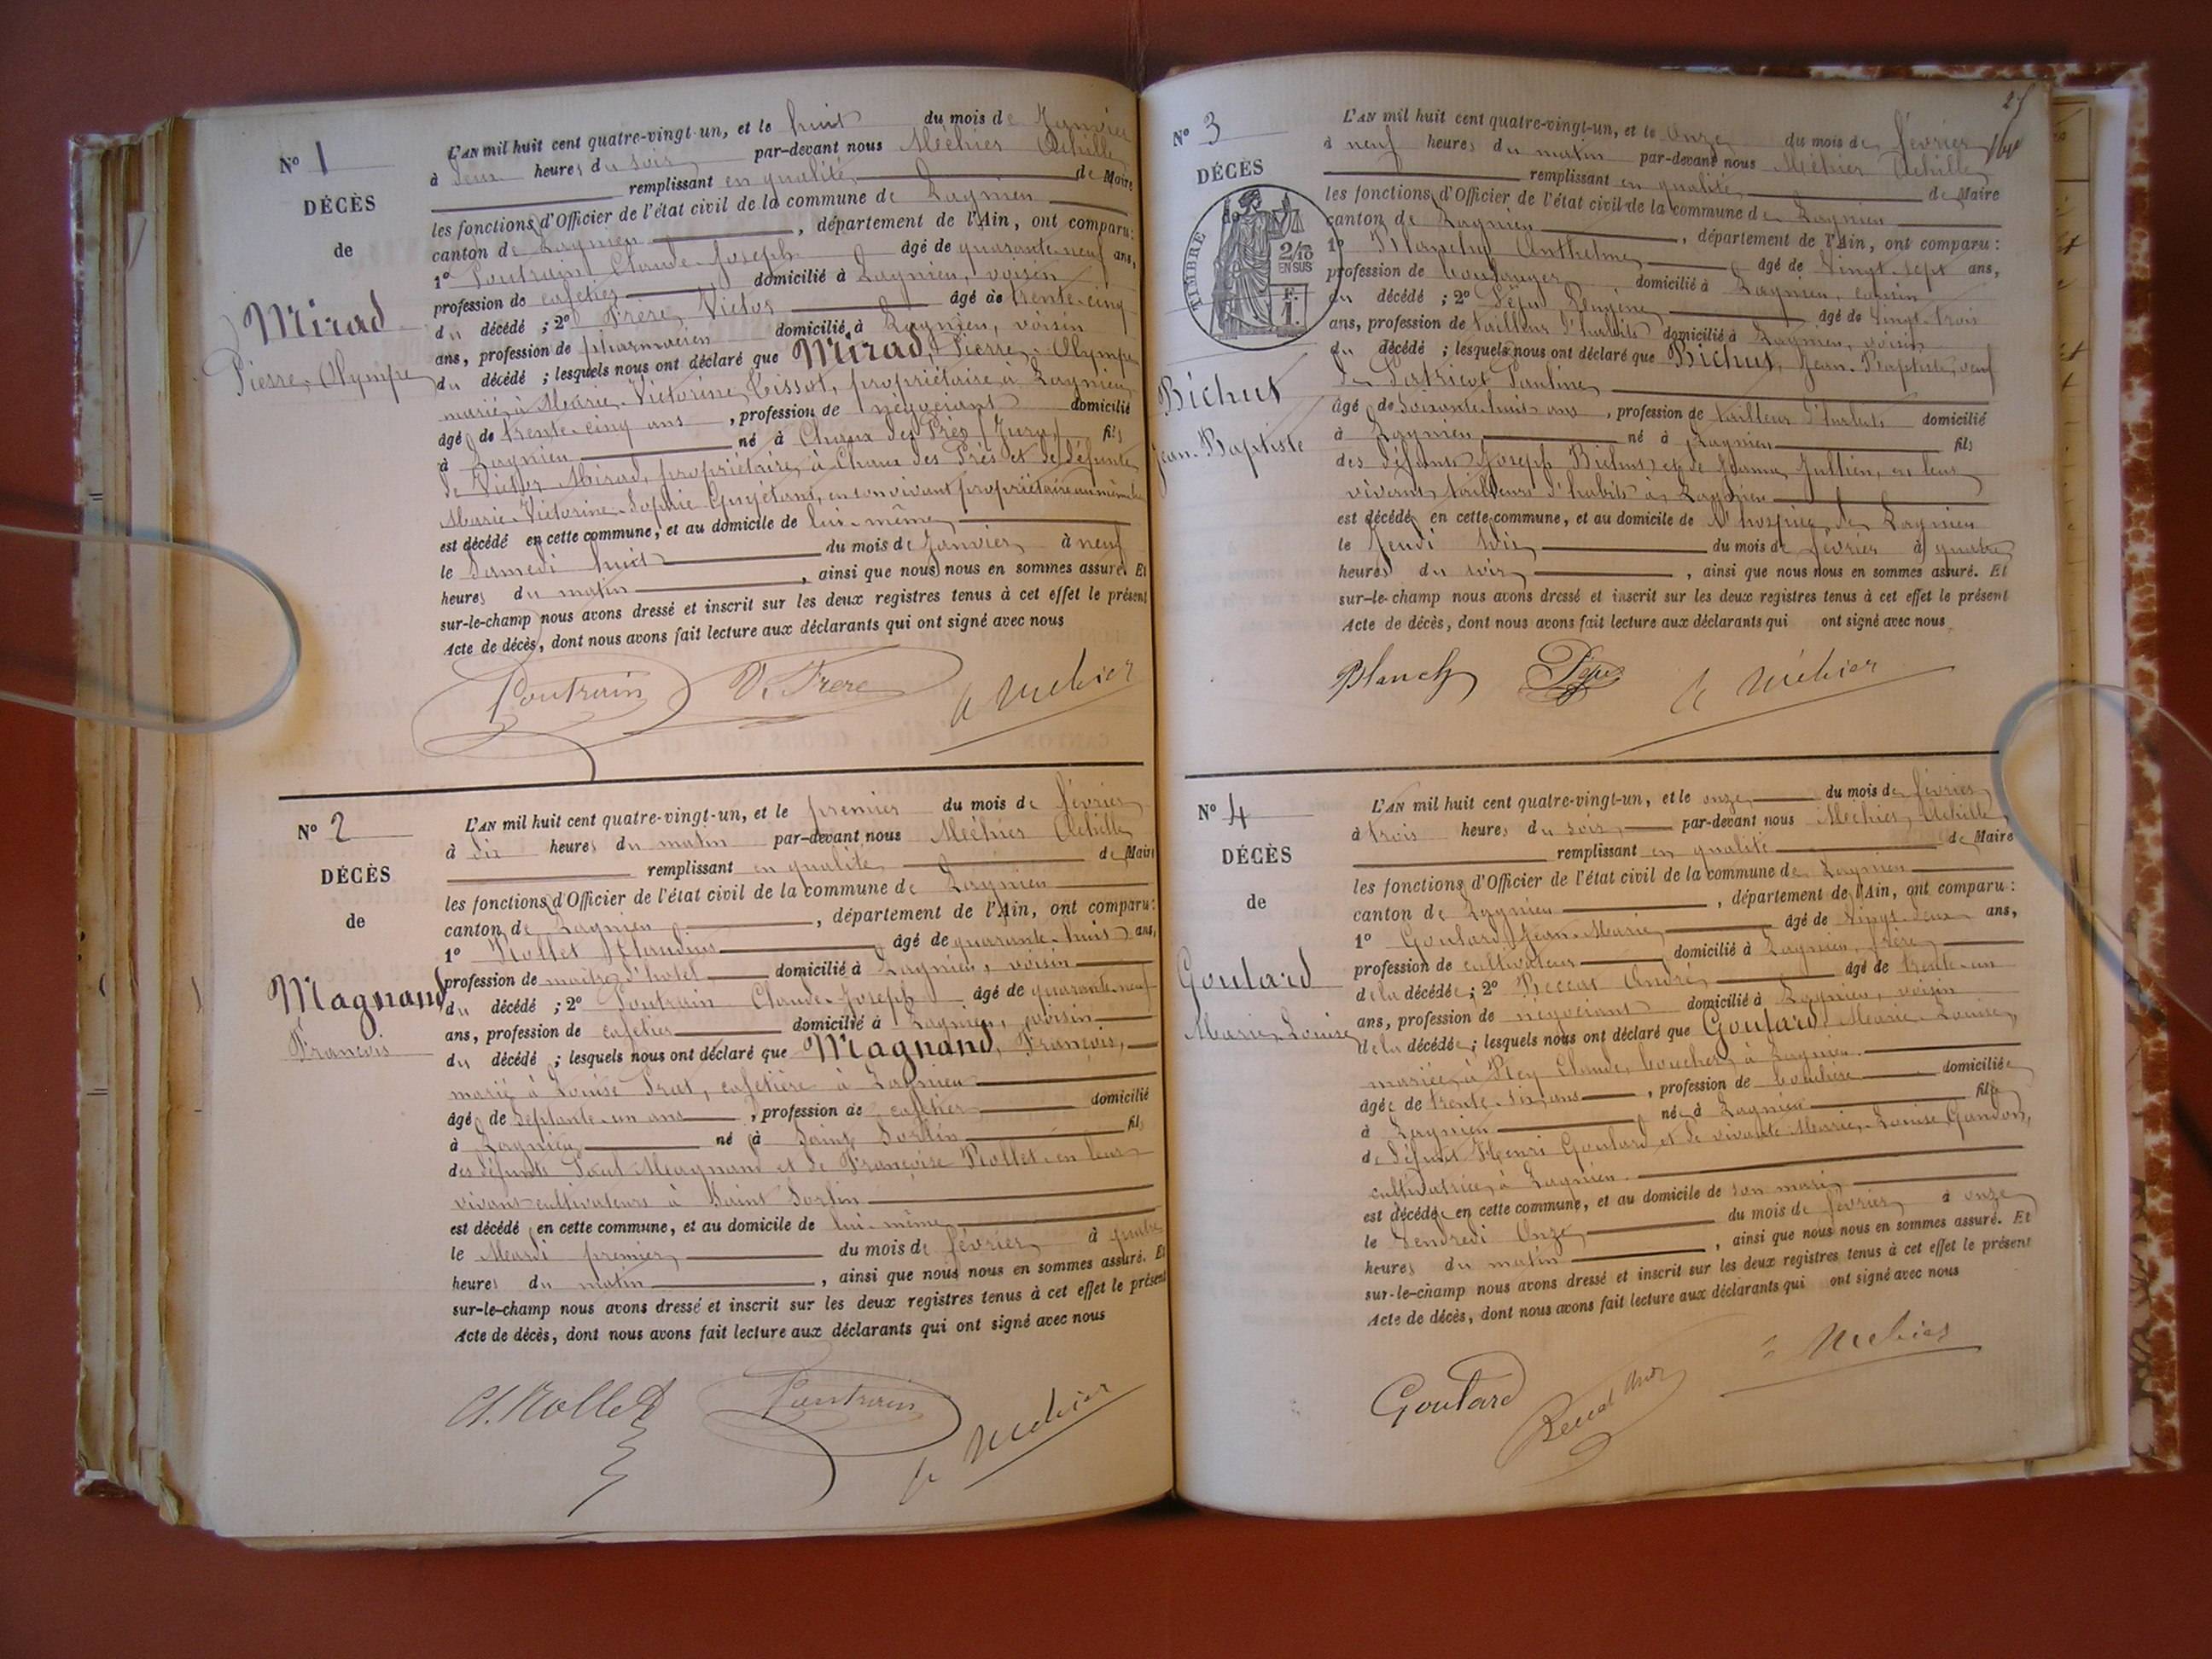 N° 1
DÉCÈS
de
Mirad
Pierre-Olympe
L'AN mil huit cent quatre-vingt-un, et le huit du mois de Janvier
à deux heures du soir par-devant nous Méhier Achille
remplissant en qualité de Maire
les fonctions d'Officier de l'état civil de la commune de Lagnieu
canton de Lagnieu, département de l'Ain, ont comparu :
1° Poutrain Claude-Joseph âgé de quarante-neuf ans,
profession de cafetier domicilié à Lagnieu, voisin
du décédé ; 2° Frère, Victor âgé de trente-cinq
ans, profession de pharmacien domicilié à Lagnieu, voisin
du décédé ; lesquels nous ont déclaré que Mirad, Pierre-Olympe
marié à Marie-Victorine Tissot, propriétaire à Lagnieu,
âgé de trente-cinq ans, profession de négociant domicilié
à Lagnieu né à Chaux des Prés (Jura) fils
de Victor Mirad, propriétaire à Chaux des Prés et de défunte
Marie-Victorine-Sophie Guyétant, en son vivant propriétaire au même lieu
est décédé en cette commune, et au domicile de lui-même
le Samedi huit du mois de Janvier à neuf
heures du matin, ainsi que nous nous en sommes assuré. Et
sur-le-champ nous avons dressé et inscrit sur les deux registres tenus à cet effet le présent
Acte de décès, dont nous avons fait lecture aux déclarants qui ont signé avec nous
Poutrain V. Frere A Méhier
N° 2
DÉCÈS
de
Magnand
François
L'AN mil huit cent quatre-vingt-un, et le premier du mois de février
à dix heures du matin par-devant nous Méhier Achille
remplissant en qualité de Maire
les fonctions d'Officier de l'état civil de la commune de Lagnieu
canton de Lagnieu, département de l'Ain, ont comparu :
1° Rollet Claudius âgé de quarante-huit ans,
profession de maître d'hôtel domicilié à Lagnieu, voisin
du décédé ; 2° Poutrain Claude-Joseph âgé de quarante-neuf
ans, profession de cafetier domicilié à Lagnieu, voisin
du décédé ; lesquels nous ont déclaré que Magnand, François,
marié à Louise Prat, cafetière à Lagnieu
âgé de septante-un ans, profession de cafetier domicilié
à Lagnieu né à Saint Sorlin fils
des défunts Paul Magnand et de Françoise Rollet, en leur
vivant cultivateurs à Saint Sorlin
est décédé en cette commune, et au domicile de lui-même
le Mardi premier du mois de février à quatre
heures du matin, ainsi que nous nous en sommes assuré. Et
sur-le-champ nous avons dressé et inscrit sur les deux registres tenus à cet effet le présent
Acte de décès, dont nous avons fait lecture aux déclarants qui ont signé avec nous
Cl. Rollet Poutrain A Méhier
N° 3
DÉCÈS
de
TIMBRE
2/10
EN SUS
F.
1.
Bichut
Jean-Baptiste
L'AN mil huit cent quatre-vingt-un, et le onze du mois de février
à neuf heures du matin par-devant nous Méhier Achille
remplissant en qualité de Maire
les fonctions d'Officier de l'état civil de la commune de Lagnieu
canton de Lagnieu, département de l'Ain, ont comparu :
1° Planchy Anthelme âgé de vingt-sept ans,
profession de boulanger domicilié à Lagnieu, cousin
du décédé ; 2° Eugène âgé de vingt-trois
ans, profession de tailleur d'habits domicilié à Lagnieu, voisin
du décédé ; lesquels nous ont déclaré que Bichut, Jean-Baptiste, veuf
de Patricot Pauline
âgé de soixante-huit ans, profession de tailleur d'habits domicilié
à Lagnieu né à Lagnieu fils
des défunts Joseph Bichut et de Jeanne Jullien, en leur
vivant tailleurs d'habits à Lagnieu
est décédé en cette commune, et au domicile de l'hospice de Lagnieu
le Jeudi dix du mois de février à quatre
heures du soir, ainsi que nous nous en sommes assuré. Et
sur-le-champ nous avons dressé et inscrit sur les deux registres tenus à cet effet le présent
Acte de décès, dont nous avons fait lecture aux déclarants qui ont signé avec nous
Planchy A Méhier
N° 4
DÉCÈS
de
Goutard
Marie-Louise
L'AN mil huit cent quatre-vingt-un, et le onze du mois de février
à trois heures du soir par-devant nous Méhier, Achille
remplissant en qualité de Maire
les fonctions d'Officier de l'état civil de la commune de Lagnieu
canton de Lagnieu, département de l'Ain, ont comparu :
1° Goutard Jean-Marie âgé de vingt-deux ans,
profession de cultivateur domicilié à Lagnieu, frère
de la décédée ; 2° André âgé de trente-un
ans, profession de négociant domicilié à Lagnieu, voisin
de la décédée ; lesquels nous ont déclaré que Goutard, Marie-Louise,
mariée à Rey Claude, boucher à Lagnieu
âgée de trente-six ans, profession de bouchère domiciliée
à Lagnieu née à Lagnieu fille
de défunt Henri Goutard et de vivante Marie-Louise Gandon,
cultivatrice à Lagnieu
est décédée en cette commune, et au domicile de son mari
le Vendredi onze du mois de février à onze
heures du matin, ainsi que nous nous en sommes assuré. Et
sur-le-champ nous avons dressé et inscrit sur les deux registres tenus à cet effet le présent
Acte de décès, dont nous avons fait lecture aux déclarants qui ont signé avec nous
Goutard A Méhier